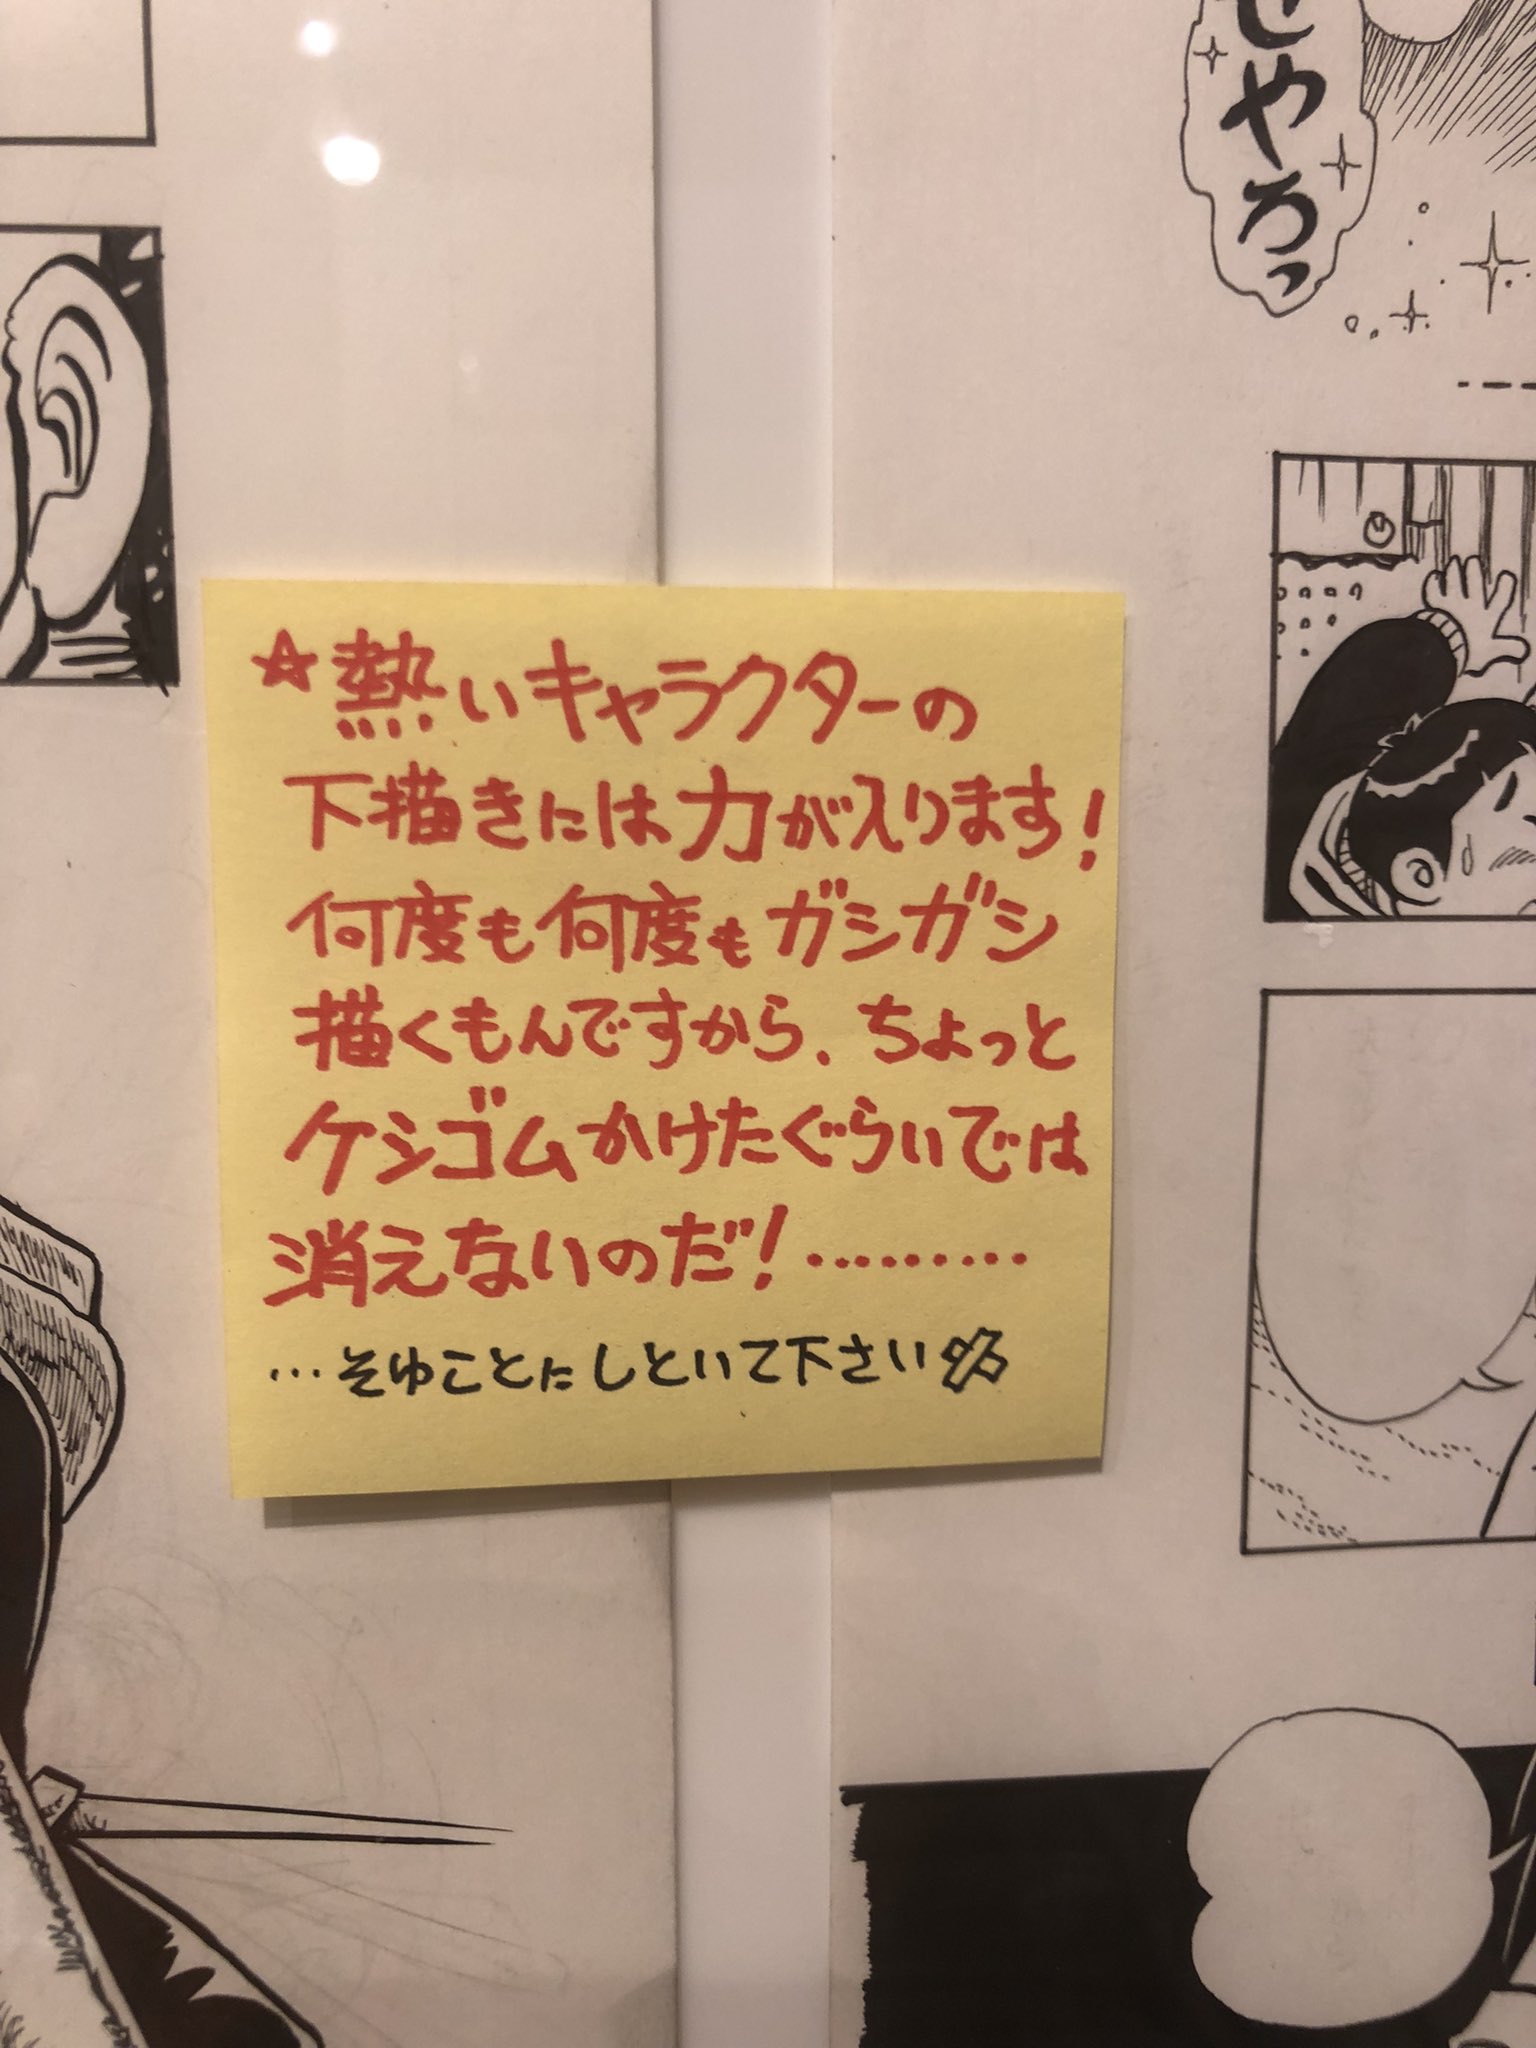 ☆熱いキャラクターの
下描きには力が入ります!
何度も何度もガシガシ
描くもんですから、ちょっと
ケシゴムかけたぐらいでは
消えないのだ!………
…そゆことにしといて下さい
やろっ